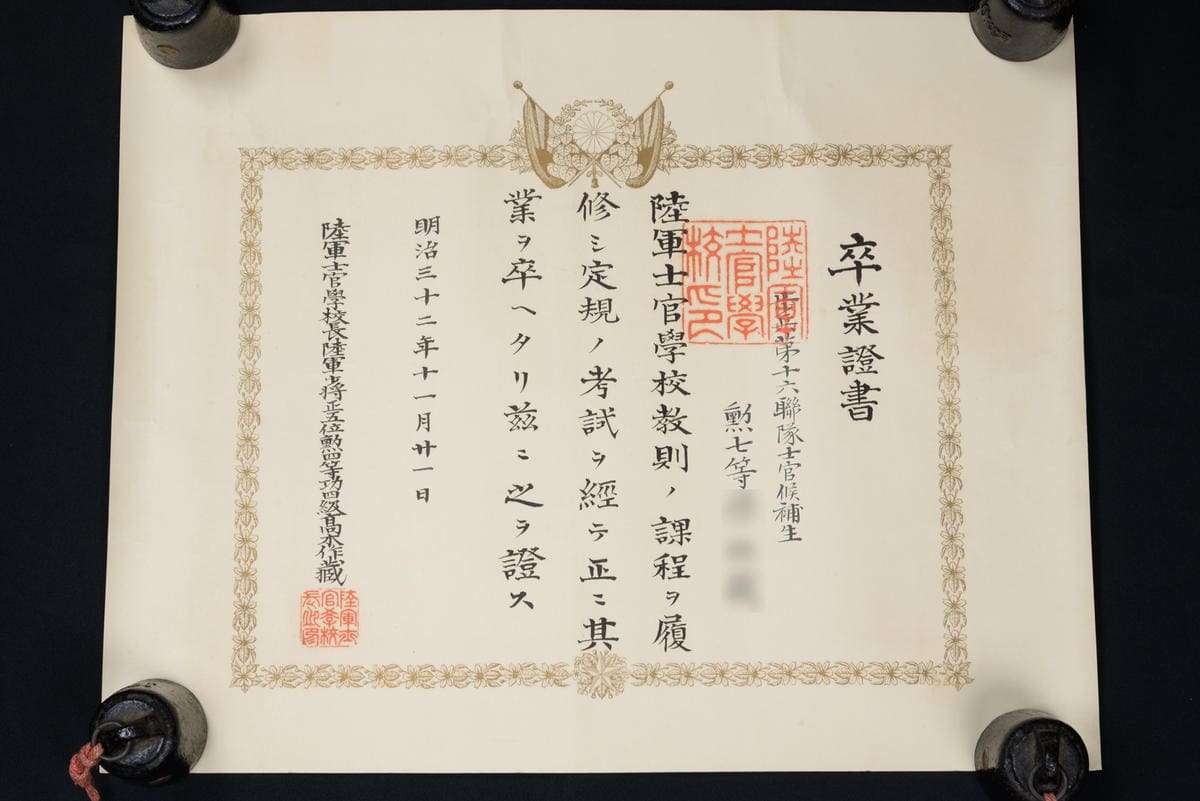 卒業證書
歩兵第十六聯隊士官候補生
勲七等
陸軍士官學校教則ノ課程ヲ履
修シ定規ノ考試ヲ經テ正ニ其
業ヲ卒ヘタリ茲ニ之ヲ證ス
明治三十二年十一月廿一日
陸軍士官學校長陸軍少将正五位勲四等功四級髙木作蔵
陸軍
士官學
校之印
陸軍士
官學校
長之印